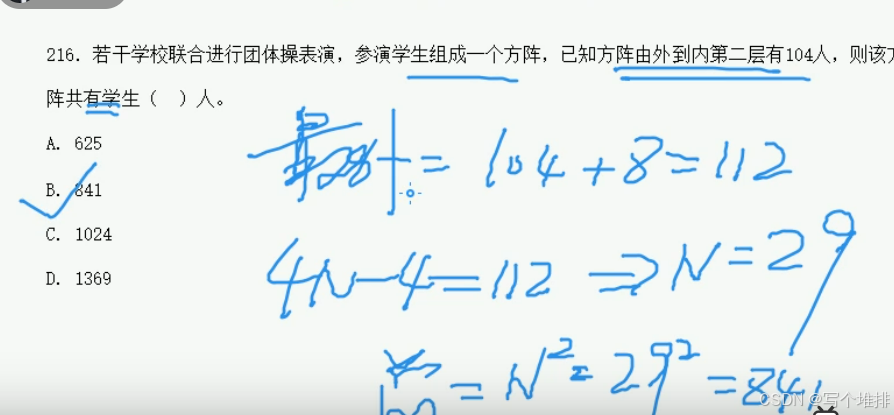 216. 若干学校联合进行团体操表演，参演学生组成一个方阵，已知方阵由外到内第二层有104人，则该方
阵共有学生（ ）人。
A. 625
B. 841
C. 1024
D. 1369
= 104+8=112
4N-4=112 ⇒ N=29
= N²=29²=841
CSDN @写个堆排